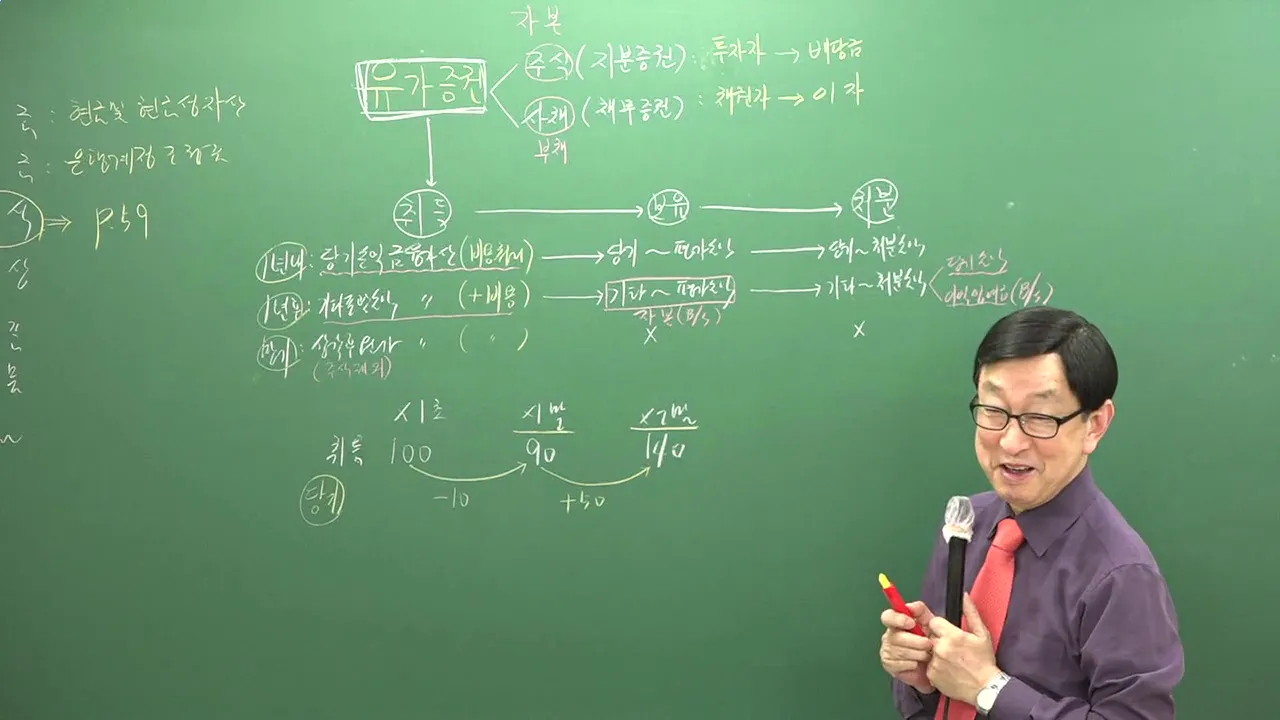 자본
유가증권
주식 (지분증권) : 투자자 → 배당금
사채 (채무증권) : 채권자 → 이자
부채
금 : 현금및 현금성자산
금 : 은행계정조정표
식 ⇒ P.59
상
취득 → 보유 → 처분
1년내 : 당기손익금융자산 (비용처리) → 당기~평가손익 → 당기~처분손익
당기손익
1년후 : 기타포괄손익 〃 (+비용) → 기타~평가손익 → 기타~처분손익
이익잉여금 (B/S)
자본 (B/S)
만기 : 상각후원가 〃 ( 〃 ) X X
(주식제외)
X1초 X1말 X2말
취득 100 90 140
당기 -10 +50